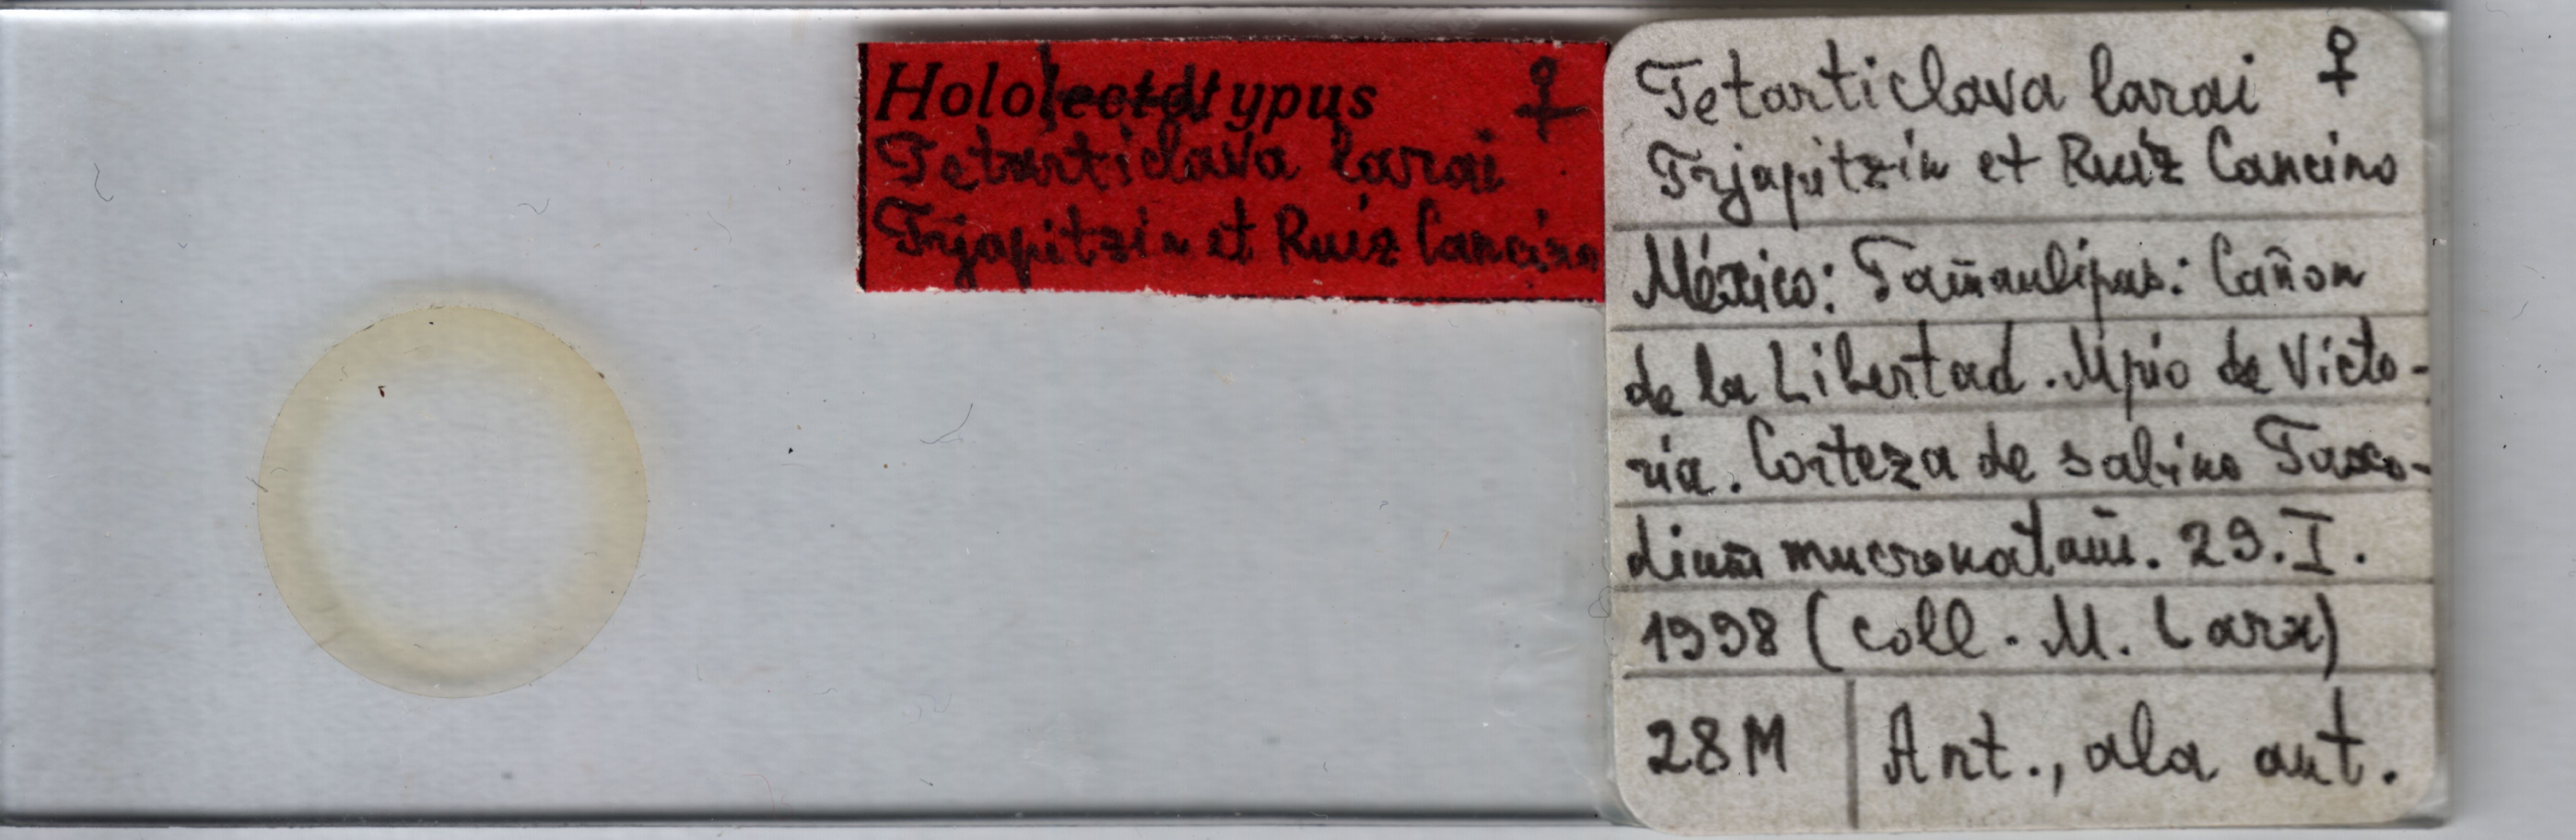 Hololectotypus ♀
Tetarticlava larai
Trjapitzin et Ruiz Cancino
Tetarticlava larai ♀
Trjapitzin et Ruiz Cancino
México: Tamaulipas: Cañon
de la Libertad. Mpio de Victo-
ria. Corteza de sabino Taxo-
dium mucronatum. 29.I.
1998 (coll. M. Lara)
28M | Ant., ala ant.